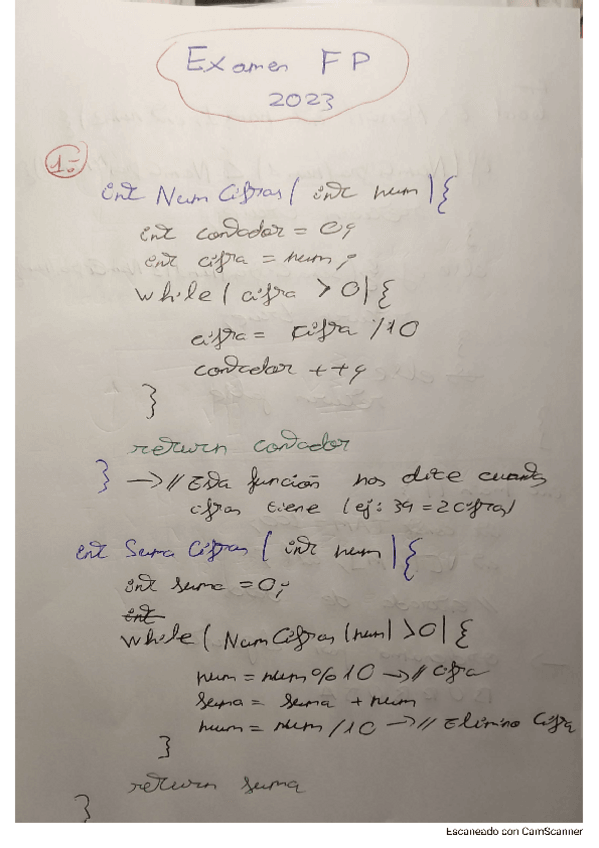 Examen FP
2023
1.-
int NumCifras ( int num ) {
int contador = 0;
int cifra = num;
while ( cifra > 0 ) {
cifra = cifra / 10
contador ++;
}
return contador
} → // Esta función nos dice cuantas
cifras tiene (ej: 34 = 2 cifras)
int Suma Cifras ( int num ) {
int suma = 0;
int
while ( NumCifras (num) > 0 ) {
num = num % 10 → // cifra
suma = suma + num
num = num / 10 → // Elimino Cifra
}
return suma
}
Escaneado con CamScanner